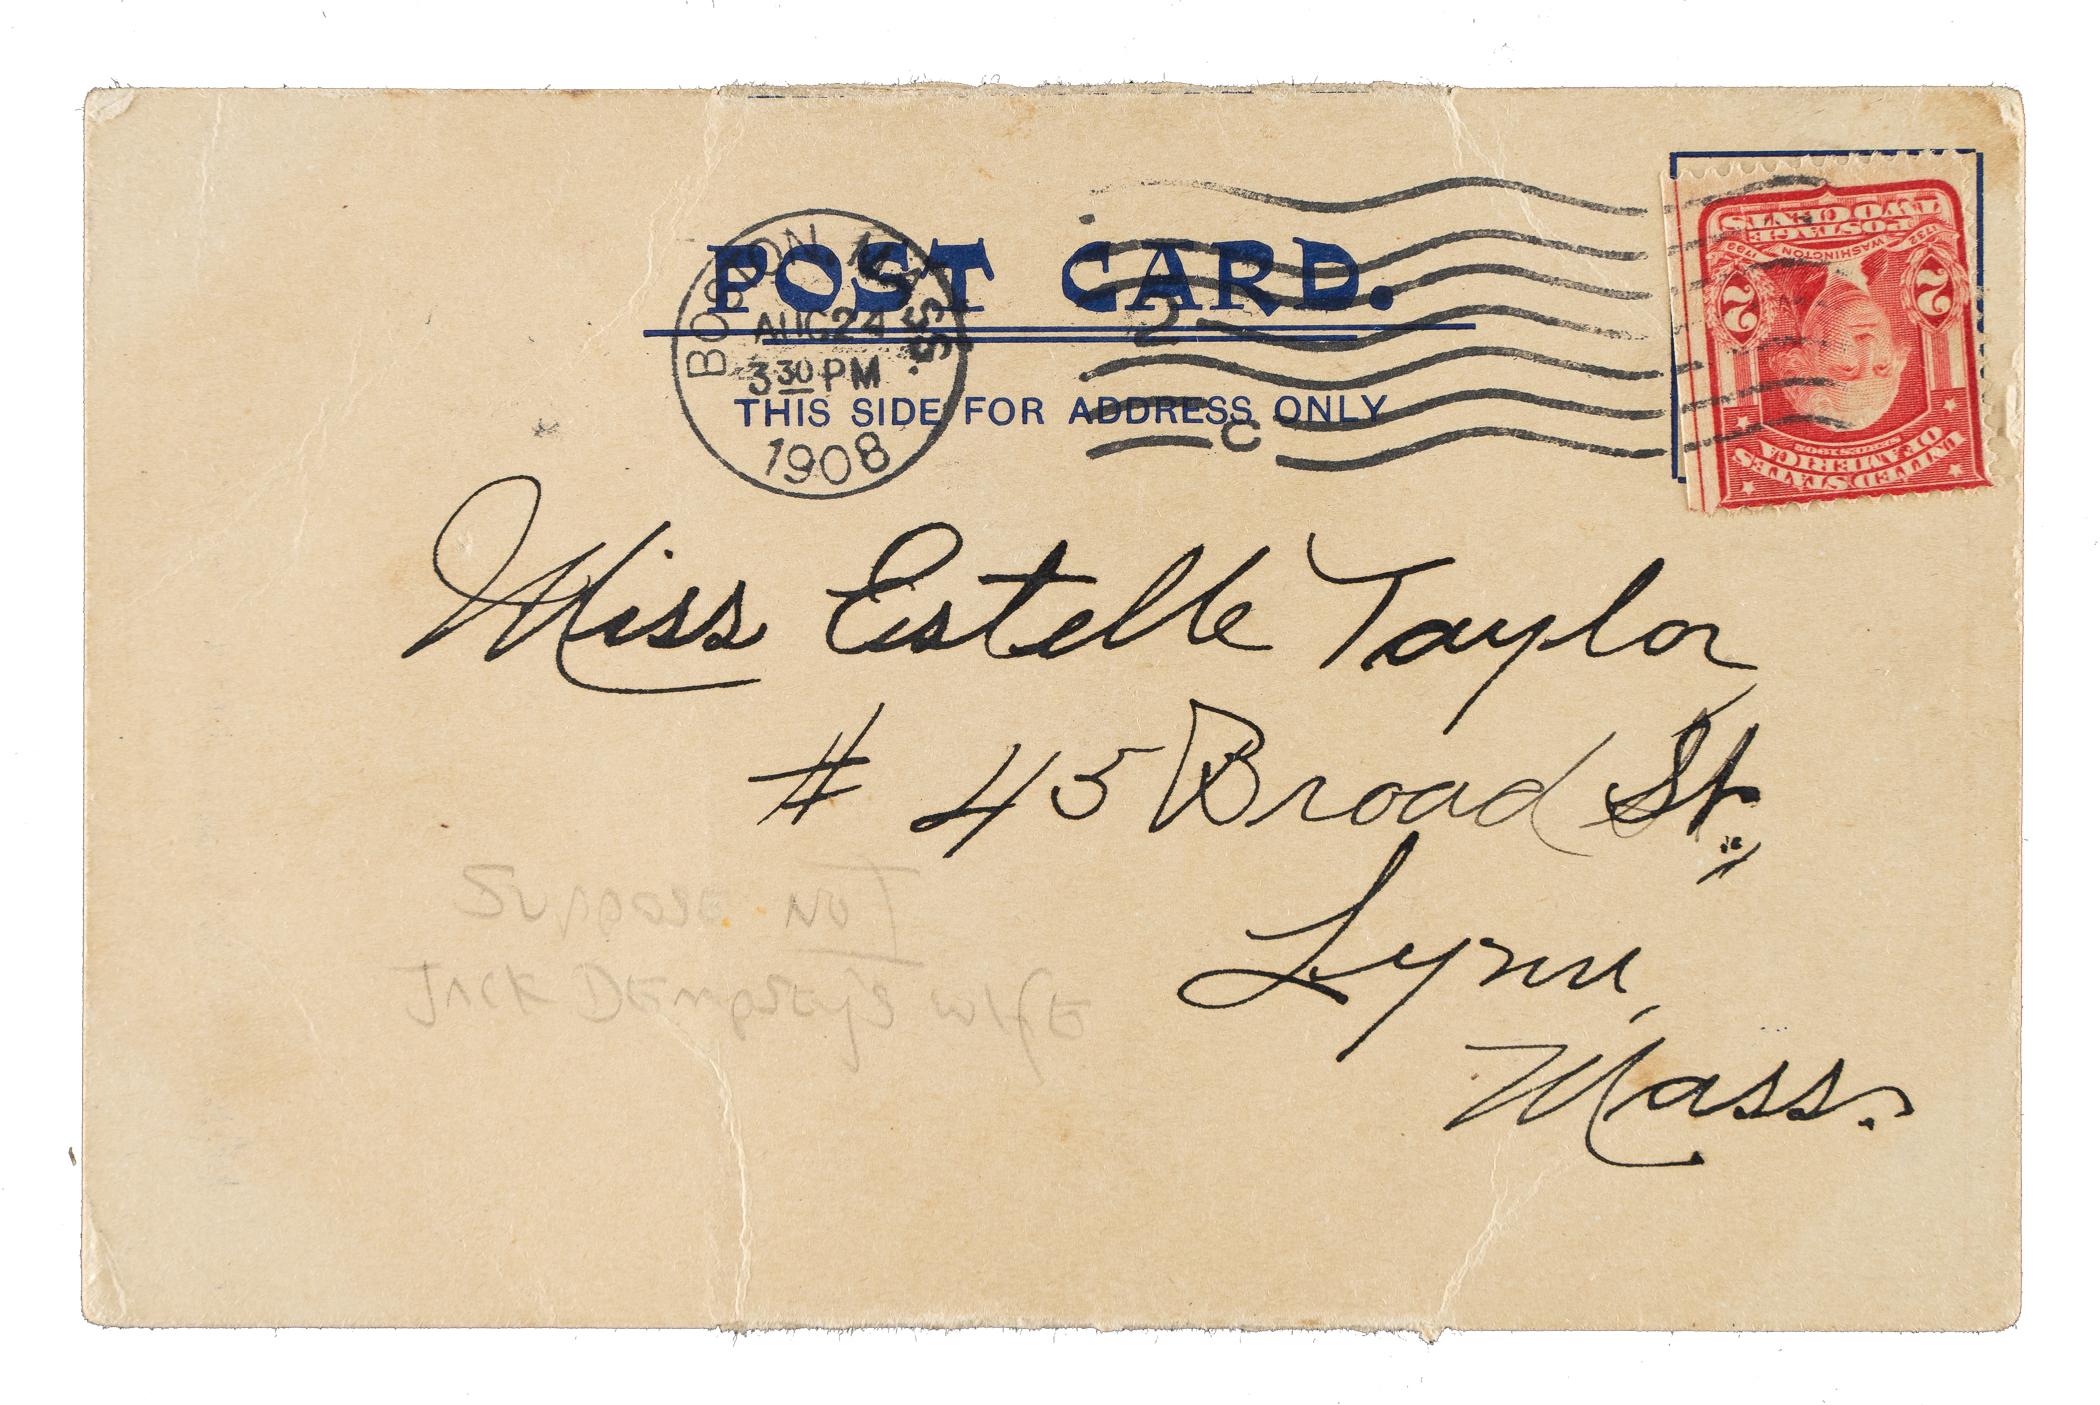 POST CARD.
BOSTON MASS.
AUG 24
3 30 PM
1908
2
C
THIS SIDE FOR ADDRESS ONLY
TWO CENTS
POSTAGE
1732 WASHINGTON 1799
2 2
SERIES 1902
UNITED STATES
OF AMERICA
Miss Estelle Taylor
# 45 Broad St.
Lynn,
Mass.
SUPPOSE NOT
JACK DEMPSEY'S WIFE